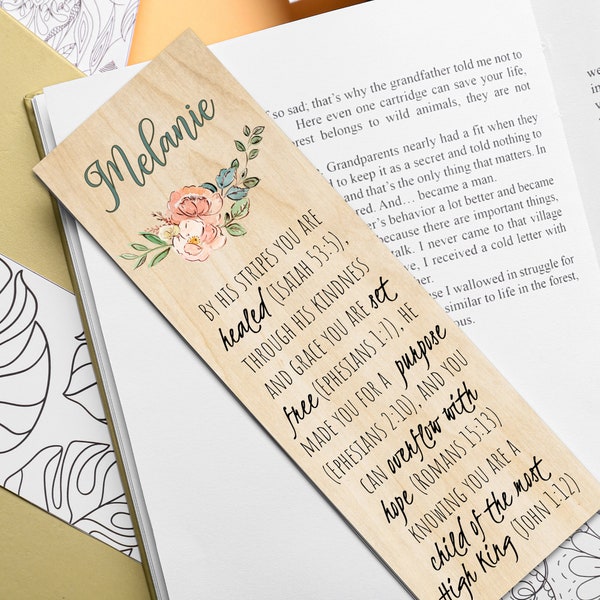 Melanie
BY HIS STRIPES YOU ARE
healed (ISAIAH 53:5),
THROUGH HIS KINDNESS
AND GRACE YOU ARE set
free (EPHESIANS 1:7), HE
MADE YOU FOR A purpose
(EPHESIANS 2:10), AND YOU
CAN overflow with
hope (ROMANS 15:13)
KNOWING YOU ARE A
child of the most
High King (JOHN 1:12)
so sad; that's why the grandfather told me not to
Here even one cartridge can save your life,
rest belongs to wild animals, they are not
Grandparents nearly had a fit when they
to keep it as a secret and told nothing to
and that's the only thing that matters. In
red. And… became a man.
r's behavior a lot better and became
because there are important things,
talk. I never came to that village
, I received a cold letter with
se I wallowed in struggle for
similar to life in the forest,
ous.
we
in